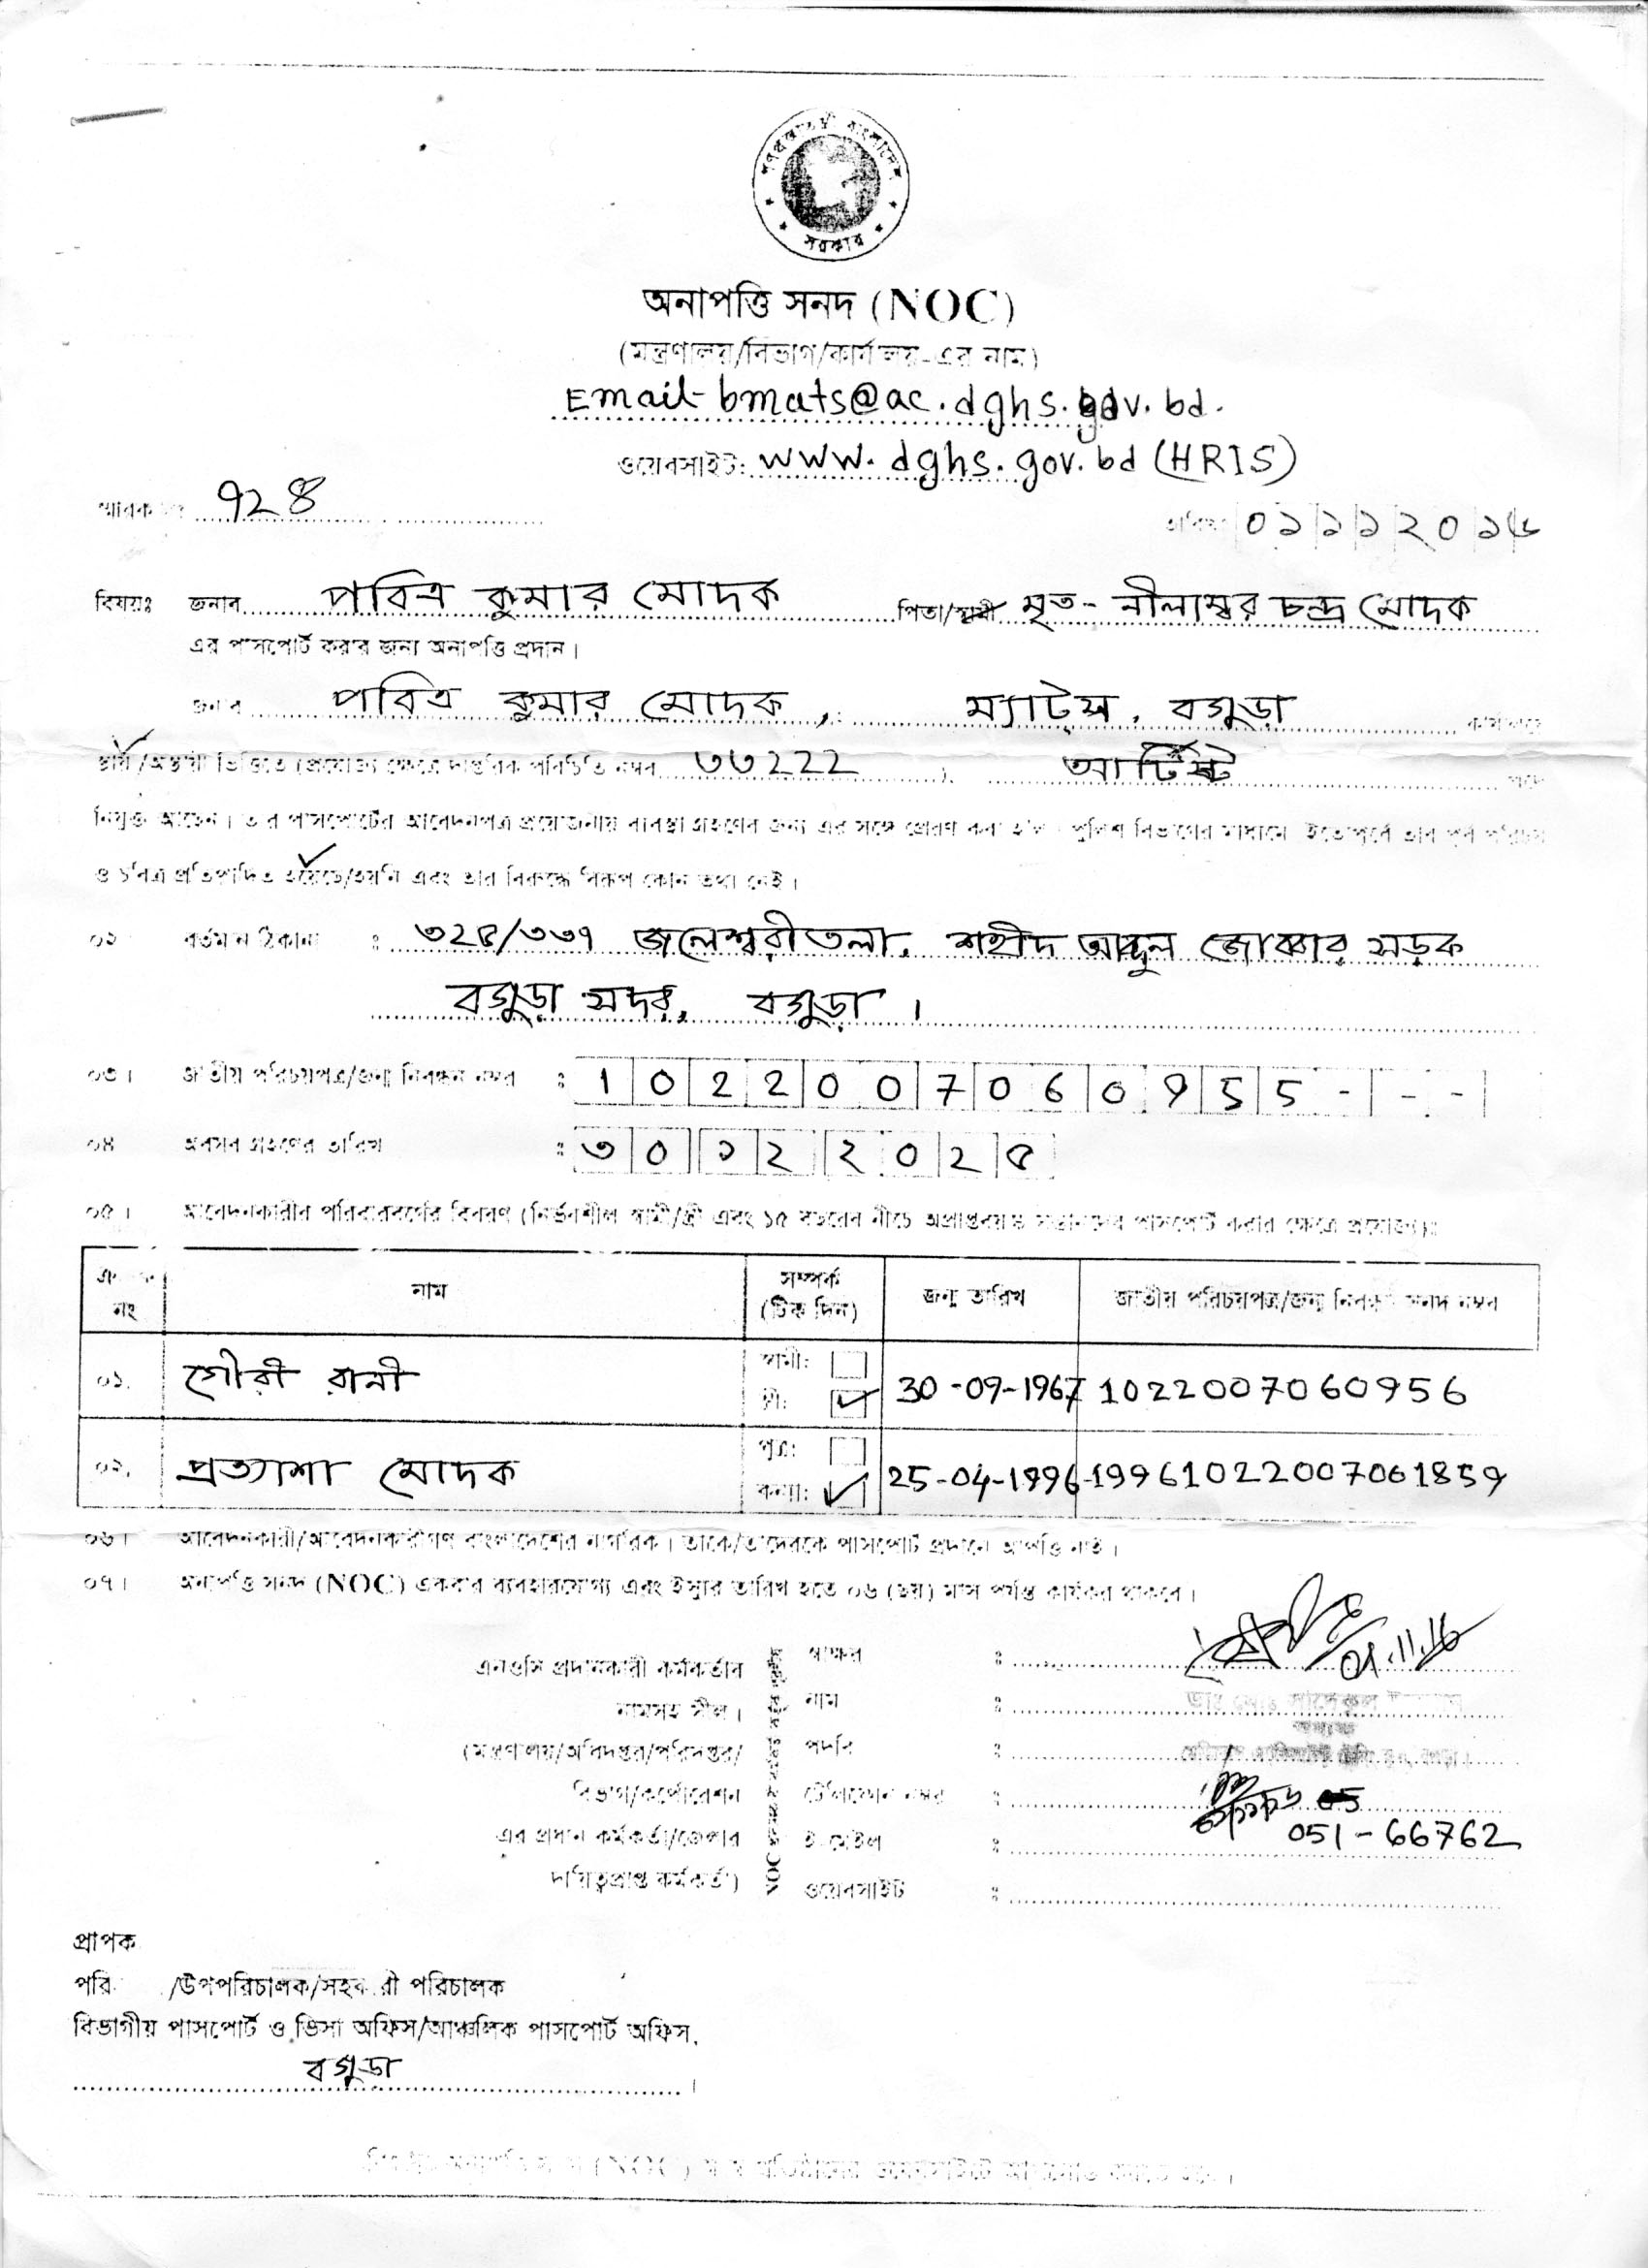 গণপ্রজাতন্ত্রী বাংলাদেশ
সরকার
অনাপত্তি সনদ (NOC)
(মন্ত্রণালয়/বিভাগ/কার্যালয়-এর নাম)
Email- bmats@ac.dghs.gov.bd.
ওয়েবসাইট: www.dghs.gov.bd (HRIS)
স্মারক নং ৭২৪
তারিখ: ০১১১২০১৬
বিষয়ঃ জনাব পবিত্র কুমার মোদক পিতা/স্বামী মৃত- নীলাম্বর চন্দ্র মোদক
এর পাসপোর্ট করার জন্য অনাপত্তি প্রদান।
জনাব পবিত্র কুমার মোদক, ম্যাটস, বগুড়া কার্যালয়ে
স্থায়ী/অস্থায়ী ভিত্তিতে (প্রযোজ্য ক্ষেত্রে দাপ্তরিক পরিচিতি নম্বর ৩৩২২২), আর্টিস্ট পদে
নিযুক্ত আছেন। তার পাসপোর্টের আবেদনপত্র প্রয়োজনীয় ব্যবস্থা গ্রহণের জন্য এর সঙ্গে প্রেরণ করা হল। পুলিশ বিভাগের মাধ্যমে ইতোপূর্বে তার পূর্ব পরিচয়
ও চরিত্র প্রতিপাদিত হয়েছে/হয়নি এবং তার বিরুদ্ধে বিরূপ কোন তথ্য নেই।
০২ বর্তমান ঠিকানা : ৩২৫/৩৩৭ জলেশ্বরীতলা, শহীদ আব্দুল জোব্বার সড়ক
বগুড়া সদর, বগুড়া।
০৩। জাতীয় পরিচয়পত্র/জন্ম নিবন্ধন নম্বর : 1022007060955---
০৪ অবসর গ্রহণের তারিখ : ৩০১২২০২৫
০৫। আবেদনকারীর পরিবারবর্গের বিবরণ (নির্ভরশীল স্বামী/স্ত্রী এবং ১৫ বছরের নীচে অপ্রাপ্তবয়স্ক সন্তানদের পাসপোর্ট করার ক্ষেত্রে প্রযোজ্য):
নং নাম সম্পর্ক (টিক দিন) জন্ম তারিখ জাতীয় পরিচয়পত্র/জন্ম নিবন্ধন সনদ নম্বর
০১. গৌরী রানী স্বামী: স্ত্রী: 30-09-1967 1022007060956
০২. প্রত্যাশা মোদক পুত্র: কন্যা: 25-04-1996 19961022007061859
০৬। আবেদনকারী/আবেদনকারীগণ বাংলাদেশের নাগরিক। তাকে/তাদেরকে পাসপোর্ট প্রদানে আপত্তি নাই।
০৭। অনাপত্তি সনদ (NOC) একবার ব্যবহারযোগ্য এবং ইস্যুর তারিখ হতে ০৬ (ছয়) মাস পর্যন্ত কার্যকর থাকবে।
এনওসি প্রদানকারী কর্মকর্তার স্বাক্ষর : 01.11.16
নামসহ সীল। নাম :
(মন্ত্রণালয়/অধিদপ্তর/পরিদপ্তর/ পদবি :
বিভাগ/কর্পোরেশন টেলিফোন নম্বর :
051-66762
এর প্রধান কর্মকর্তা/জেলার ই-মেইল :
দায়িত্বপ্রাপ্ত কর্মকর্তা) ওয়েবসাইট :
প্রাপক
/উপপরিচালক/সহকারী পরিচালক
বিভাগীয় পাসপোর্ট ও ভিসা অফিস/আঞ্চলিক পাসপোর্ট অফিস,
বগুড়া।